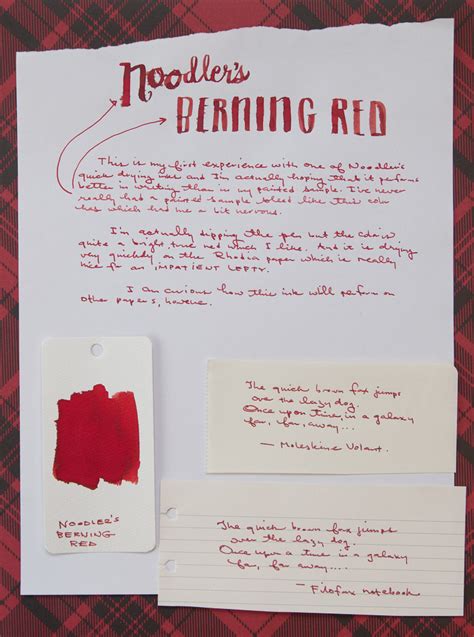 Noodler's
BERNING RED
This is my first experience with one of Noodler's
quick drying inks and I'm actually hoping that it performs
better in writing than in my painted sample. I've never
really had a painted sample bleed like this color
has which had me a bit nervous.
I'm actually dipping the pen but the color is
quite a bright, true red which I like. And it is drying
very quickly on the Rhodia paper which is really
nice for an IMPATIENT LEFTY.
I am curious how this ink will perform on
other papers, however.
The quick brown fox jumps
over the lazy dog.
Once upon a time, in a galaxy
far, far, away...
— Moleskine Volant.
NOODLER'S
BERNING
RED
The quick brown fox jumps
over the lazy dog.
Once upon a time in a galaxy
far, far away....
— Filofax notebook